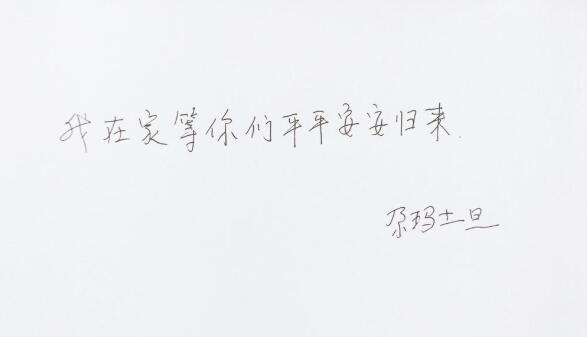 我在家等你们平平安安归来.
尕玛土旦